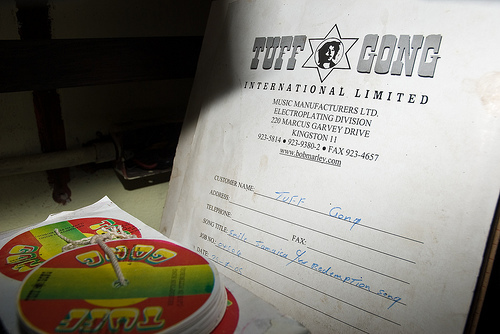 TUFF GONG
INTERNATIONAL LIMITED
MUSIC MANUFACTURERS LTD.
ELECTROPLATING DIVISION
220 MARCUS GARVEY DRIVE
KINGSTON 11
923-5814 • 923-9380-2 • FAX 923-4657
www.bobmarley.com
CUSTOMER NAME: Tuff Gong
ADDRESS:
TELEPHONE: FAX:
SONG TITLE: Smile Jamaica / Redemption Song
JOB NO.:
DATE:
TUFF